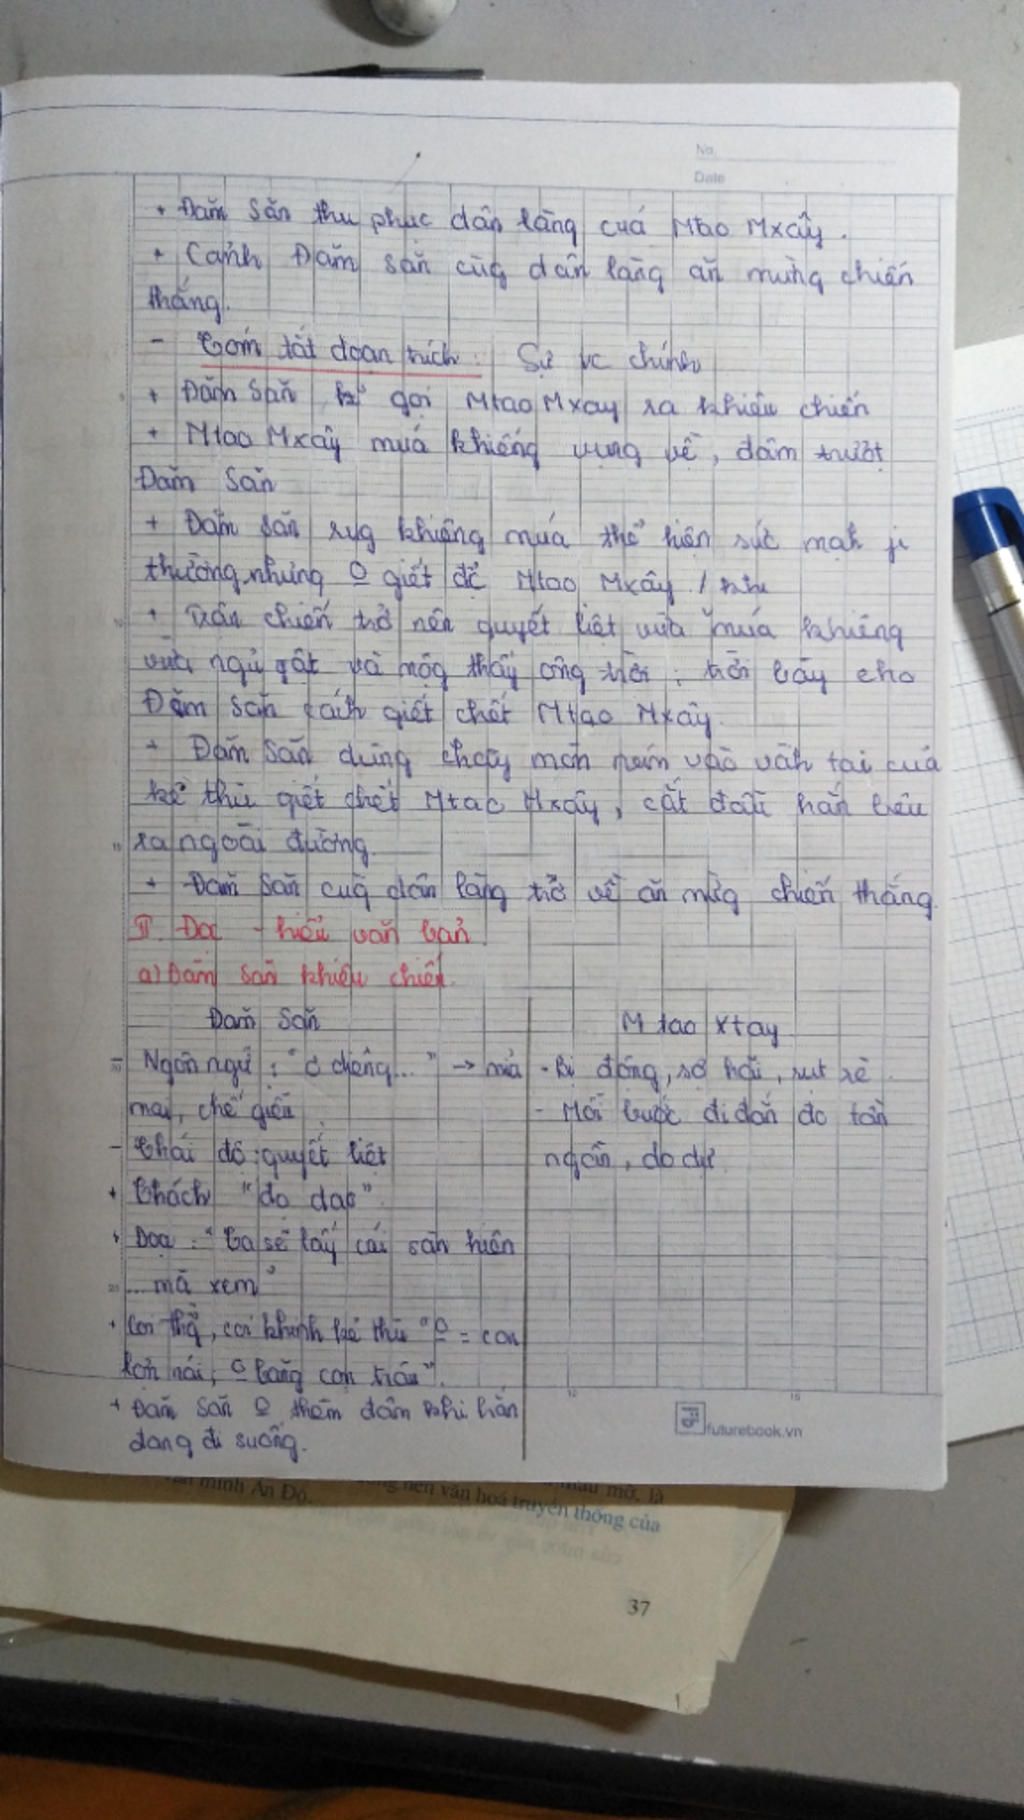 No.
Date
+ Đăm Săn thu phục dân làng của Mtao Mxây.
+ Cảnh Đăm Săn cùg dân làng ăn mừng chiến
thắng.
- Tóm tắt đoạn trích: Sự vc chính
+ Đăm Săn gọi Mtao Mxây ra khiêu chiến
+ Mtao Mxây múa khiêng vụng về, đâm trượt
Đăm Săn
+ Đăm Săn rug khiêng múa thể hiện sức mạh
thường, nhưng O giết đc Mtao Mxây
+ Trận chiến trở nên quyết liệt vừa múa khiêng
vừa ngủ gật và mộg thấy ông trời; trời bày cho
Đăm Săn cách giết chết Mtao Mxây.
+ Đăm Săn dùng chày mòn ném vào vàh tai của
kẻ thù giết chết Mtao Mxây, cắt đầu hắn bêu
ra ngoài đường.
+ Đăm Săn cùg dân làng trở về ăn mừg chiến thắng.
II. Đọc - hiểu văn bản
a) Đăm Săn khiêu chiến.
Đăm Săn
M tao Xtay
- Ngôn ngữ: "ơ diêng..." → mỉa
mai, chế giễu
- Thái độ: quyết liệt
+ Thách "đọ dao".
+ Doạ: "Ta sẽ lấy cái sàn hiên
... mà xem"
+ Coi thg̉, coi khinh kẻ thù "O = con
lợn nái, O bằng con trâu".
+ Đăm Săn O thèm đâm khi hắn
đang đi xuống.
- Bị động, sợ hãi, rụt rè
- Mỗi bước đi đắn đo tần
ngần, do dự
futurebook.vn
minh Ấn Độ.
nền văn hoá truyền thống của
mỡ, là
37